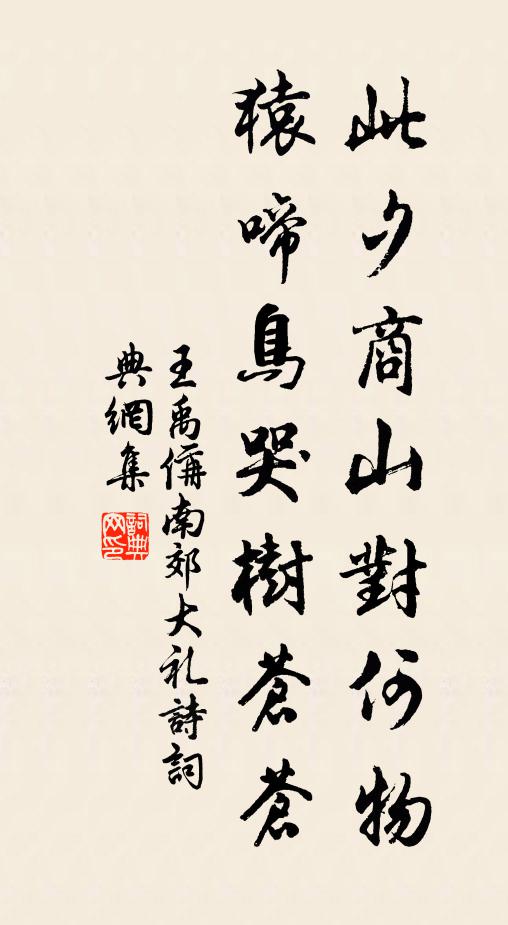 此夕商山對何物
猿啼鳥哭樹蒼蒼
王禹偁南郊大礼詩詞
典網集
詞典網印